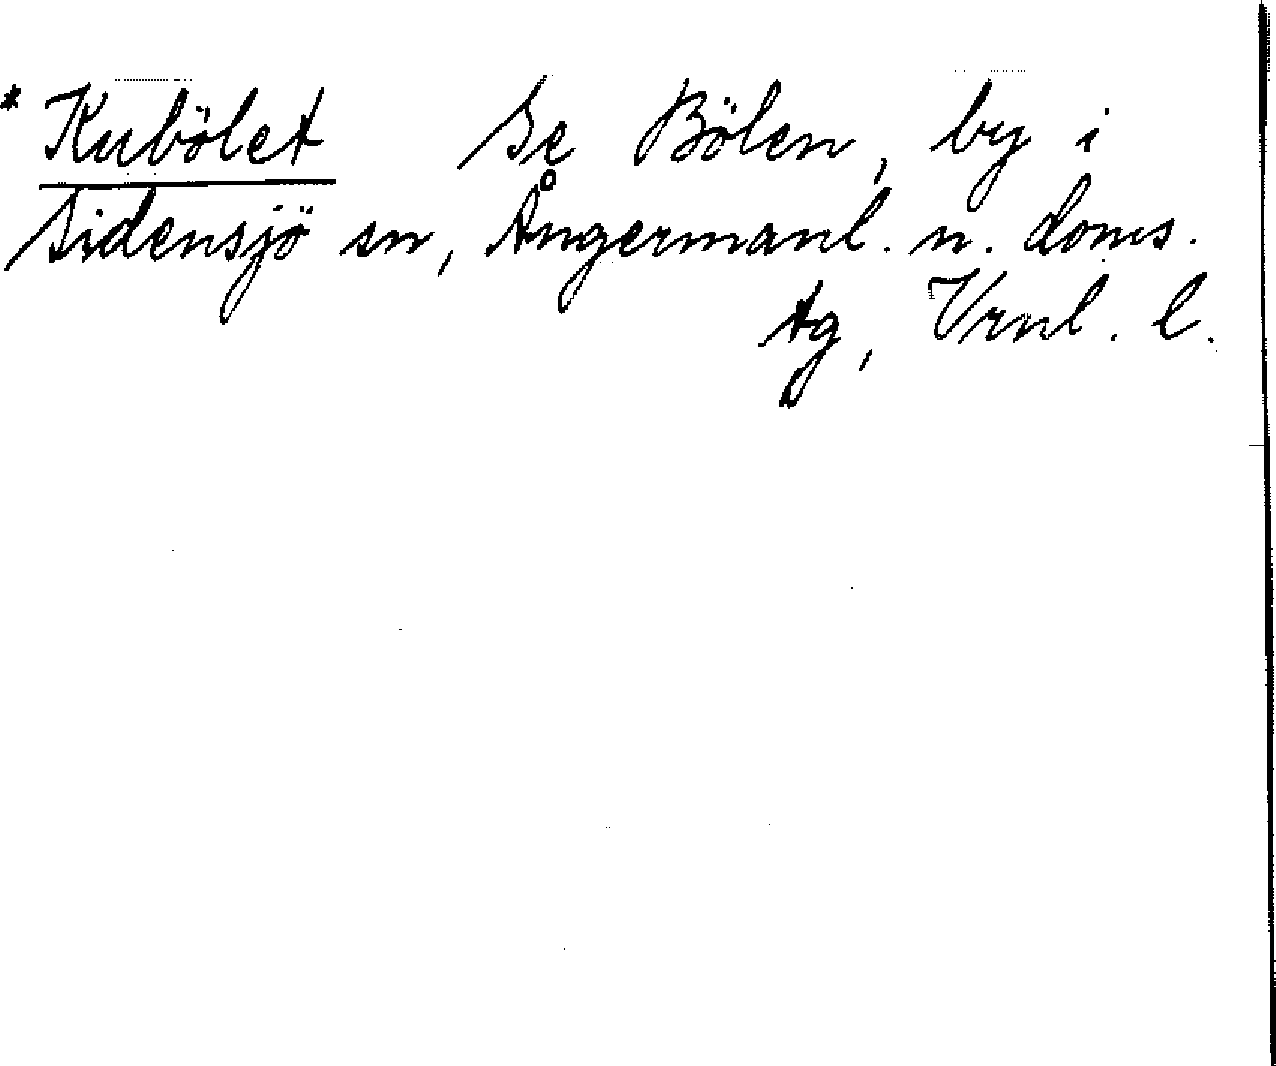 * Kubölet Se Bölen, by i
Sidensjö sn, Ångermanl. n. doms.
tg, Vrnl. l.